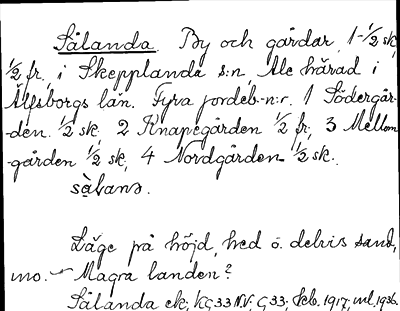 Sålanda. By och gårdar, 1-1/2 sk,
1/2 fr, i Skepplanda s:n, Ale härad i
Älfsborgs län. Fyra jordeb.-n:r. 1 Södergår-
-den 1/2 sk, 2 Knapegården 1/2 fr, 3 Mellom-
-gården 1/2 sk, 4 Nordgården 1/2 sk.
Läge på höjd, hed o. delvis sand,
mo. – Magra landen?
Sålanda ek; kG33NV, G33; Feb. 1917, ul. 1936.